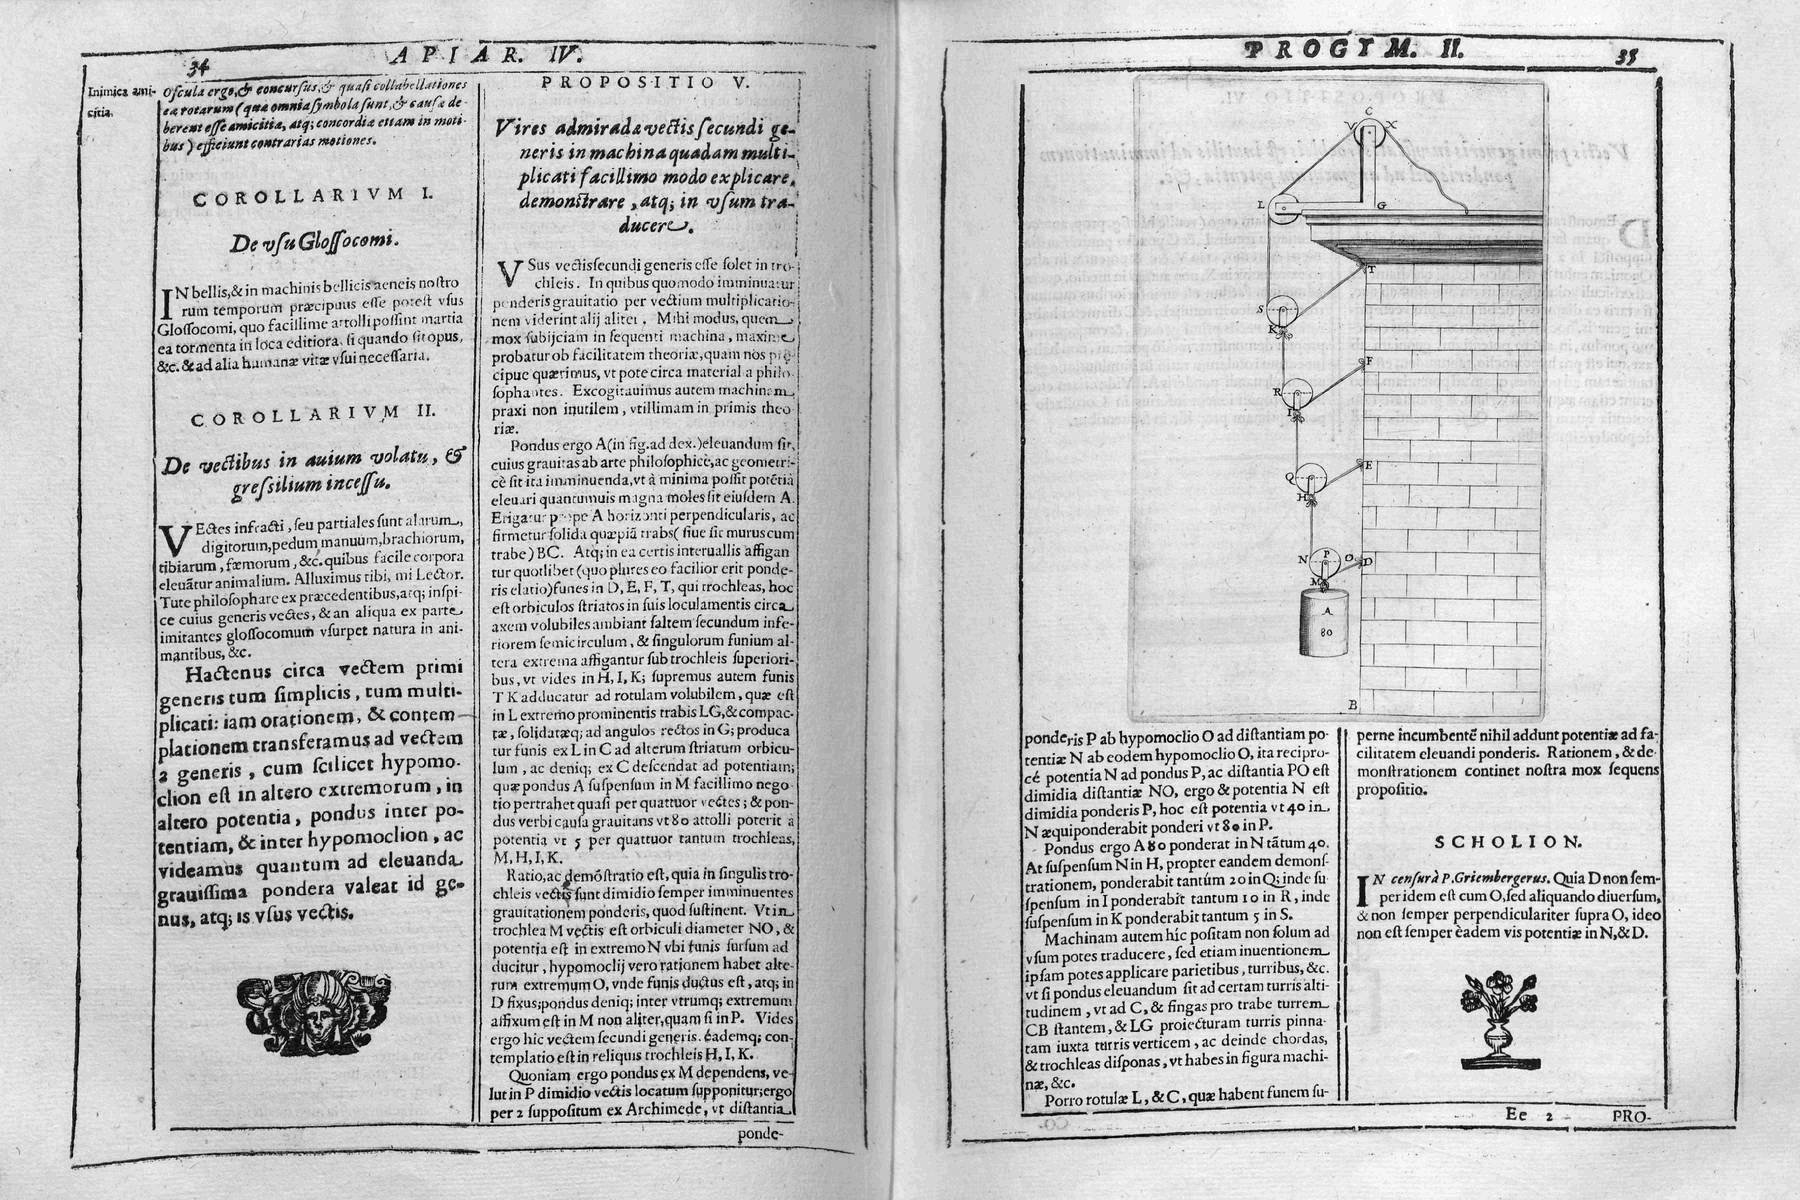 34
APIAR. IV.
Inimica ami-
citia.
Oscula ergo, & concursus, & quasi collabellationes
eæ rotarum (quæ omnia symbola sunt, & causæ de-
berent esse amicitiæ, atq; concordiæ etiam in moti-
bus) efficiunt contrarias motiones.
COROLLARIVM I.
De vsu Glossocomi.
IN bellis, & in machinis bellicis aeneis nostro
rum temporum præcipuus esse potest vsus
Glossocomi, quo facillime attolli possint martia
ea tormenta in loca editiora, si quando sit opus,
&c. & ad alia humanæ vitæ vsui necessaria.
COROLLARIVM II.
De vectibus in auium volatu, &
gressilium incessu.
VEctes infracti, seu partiales sunt alarum,
digitorum, pedum, manuum, brachiorum,
tibiarum, fæmorum, &c. quibus facile corpora
eleuātur animalium. Alluximus tibi, mi Lector.
Tute philosophare ex præcedentibus, atq; inspi-
ce cuius generis vectes, & an aliqua ex parte
imitantes glossocomum vsurpet natura in ani-
mantibus, &c.
Hactenus circa vectem primi
generis tum simplicis, tum multi-
plicati: iam orationem, & contem-
plationem transferamus ad vectem
2 generis, cum scilicet hypomo-
clion est in altero extremorum, in
altero potentia, pondus inter po-
tentiam, & inter hypomoclion, ac
videamus quantum ad eleuanda
grauissima pondera valeat id ge-
nus, atq; is vsus vectis.
PROPOSITIO V.
Vires admiradæ vectis secundi ge-
neris in machina quadam multi-
plicati facillimo modo explicare,
demonstrare, atq; in vsum tra-
ducere.
VSus vectis secundi generis esse solet in tro-
chleis. In quibus quomodo imminuatur
ponderis grauitatio per vectium multiplicatio-
nem viderint alij aliter. Mihi modus, quem
mox subijciam in sequenti machina, maxime
probatur ob facilitatem theoriæ, quam nos præ
cipue quærimus, vt pote circa materiala philo-
sophantes. Excogitauimus autem machinam
praxi non inutilem, vtillimam in primis theo
riæ.
Pondus ergo A (in fig. ad dex.) eleuandum sit,
cuius grauitas ab arte philosophicè, ac geometri-
cè sit ita imminuenda, vt à minima possit potētia
eleuari quantumuis magna moles sit eiusdem A.
Erigatur prope A horizonti perpendicularis, ac
firmetur solida quæpiā trabs (siue sit murus cum
trabe) BC. Atq; in ea certis interuallis affigan
tur quotlibet (quo plures eo facilior erit ponde-
ris elatio) funes in D, E, F, T, qui trochleas, hoc
est orbiculos striatos in suis loculamentis circa
axem volubiles ambiant saltem secundum infe-
riorem semicirculum, & singulorum funium al-
tera extrema affigantur sub trochleis superiori-
bus, vt vides in H, I, K; supremus autem funis
T K adducatur ad rotulam volubilem, quæ est
in L extremo prominentis trabis LG, & compac-
tæ, solidatæq; ad angulos rectos in G; produca
tur funis ex L in C ad alterum striatum orbicu-
lum, ac deniq; ex C descendat ad potentiam;
quæ pondus A suspensum in M facillimo nego-
tio pertrahet quasi per quattuor vectes; & pon-
dus verbi causa grauitans vt 80 attolli poterit à
potentia vt 5 per quattuor tantum trochleas,
M, H, I, K.
Ratio, ac demōstratio est, quia in singulis tro-
chleis vectis sunt dimidio semper imminuentes
grauitationem ponderis, quod sustinent. Vt in
trochlea M vectis est orbiculi diameter NO, &
potentia est in extremo N vbi funis sursum ad
ducitur, hypomoclij vero rationem habet alte-
rum extremum O, vnde funis ductus est, atq; in
D fixus; pondus deniq; inter vtrumq; extremum
affixum est in M non aliter, quam si in P. Vides
ergo hic vectem secundi generis. éademq; con-
templatio est in reliquis trochleis H, I, K.
Quoniam ergo pondus ex M dependens, ve-
lut in P dimidio vectis locatum supponitur; ergo
per 2 suppositum ex Archimede, vt distantia
ponde-
PROGYM. II.
35
C
V
X
L
G
T
S
K
F
R
I
E
Q
H
P
N
O
D
M
A
80
B
ponderis P ab hypomoclio O ad distantiam po-
tentiæ N ab eodem hypomoclio O, ita recipro-
cé potentia N ad pondus P, ac distantia PO est
dimidia distantiæ NO, ergo & potentia N est
dimidia ponderis P, hoc est potentia vt 40 in
N æquiponderabit ponderi vt 80 in P.
Pondus ergo A 80 ponderat in N tātum 40.
At suspensum N in H, propter eandem demons-
trationem, ponderabit tantúm 20 in Q; inde su
spensum in I ponderabit tantum 10 in R, inde
suspensum in K ponderabit tantum 5 in S.
Machinam autem hîc positam non solum ad
vsum potes traducere, sed etiam inuentionem
ipsam potes applicare parietibus, turribus, &c.
vt si pondus eleuandum sit ad certam turris alti-
tudinem, vt ad C, & fingas pro trabe turrem
CB stantem, & LG proiecturam turris pinna-
tam iuxta turris verticem, ac deinde chordas,
& trochleas disponas, vt habes in figura machi-
næ, &c.
Porro rotulæ L, & C, quæ habent funem su-
perne incumbentē nihil addunt potentiæ ad fa-
cilitatem eleuandi ponderis. Rationem, & de-
monstrationem continet nostra mox sequens
propositio.
SCHOLION.
IN censurà P. Griembergerus. Quia D non sem-
per idem est cum O, sed aliquando diuersum,
& non semper perpendiculariter supra O, ideo
non est semper èadem vis potentiæ in N, & D.
Ee 2
PRO-